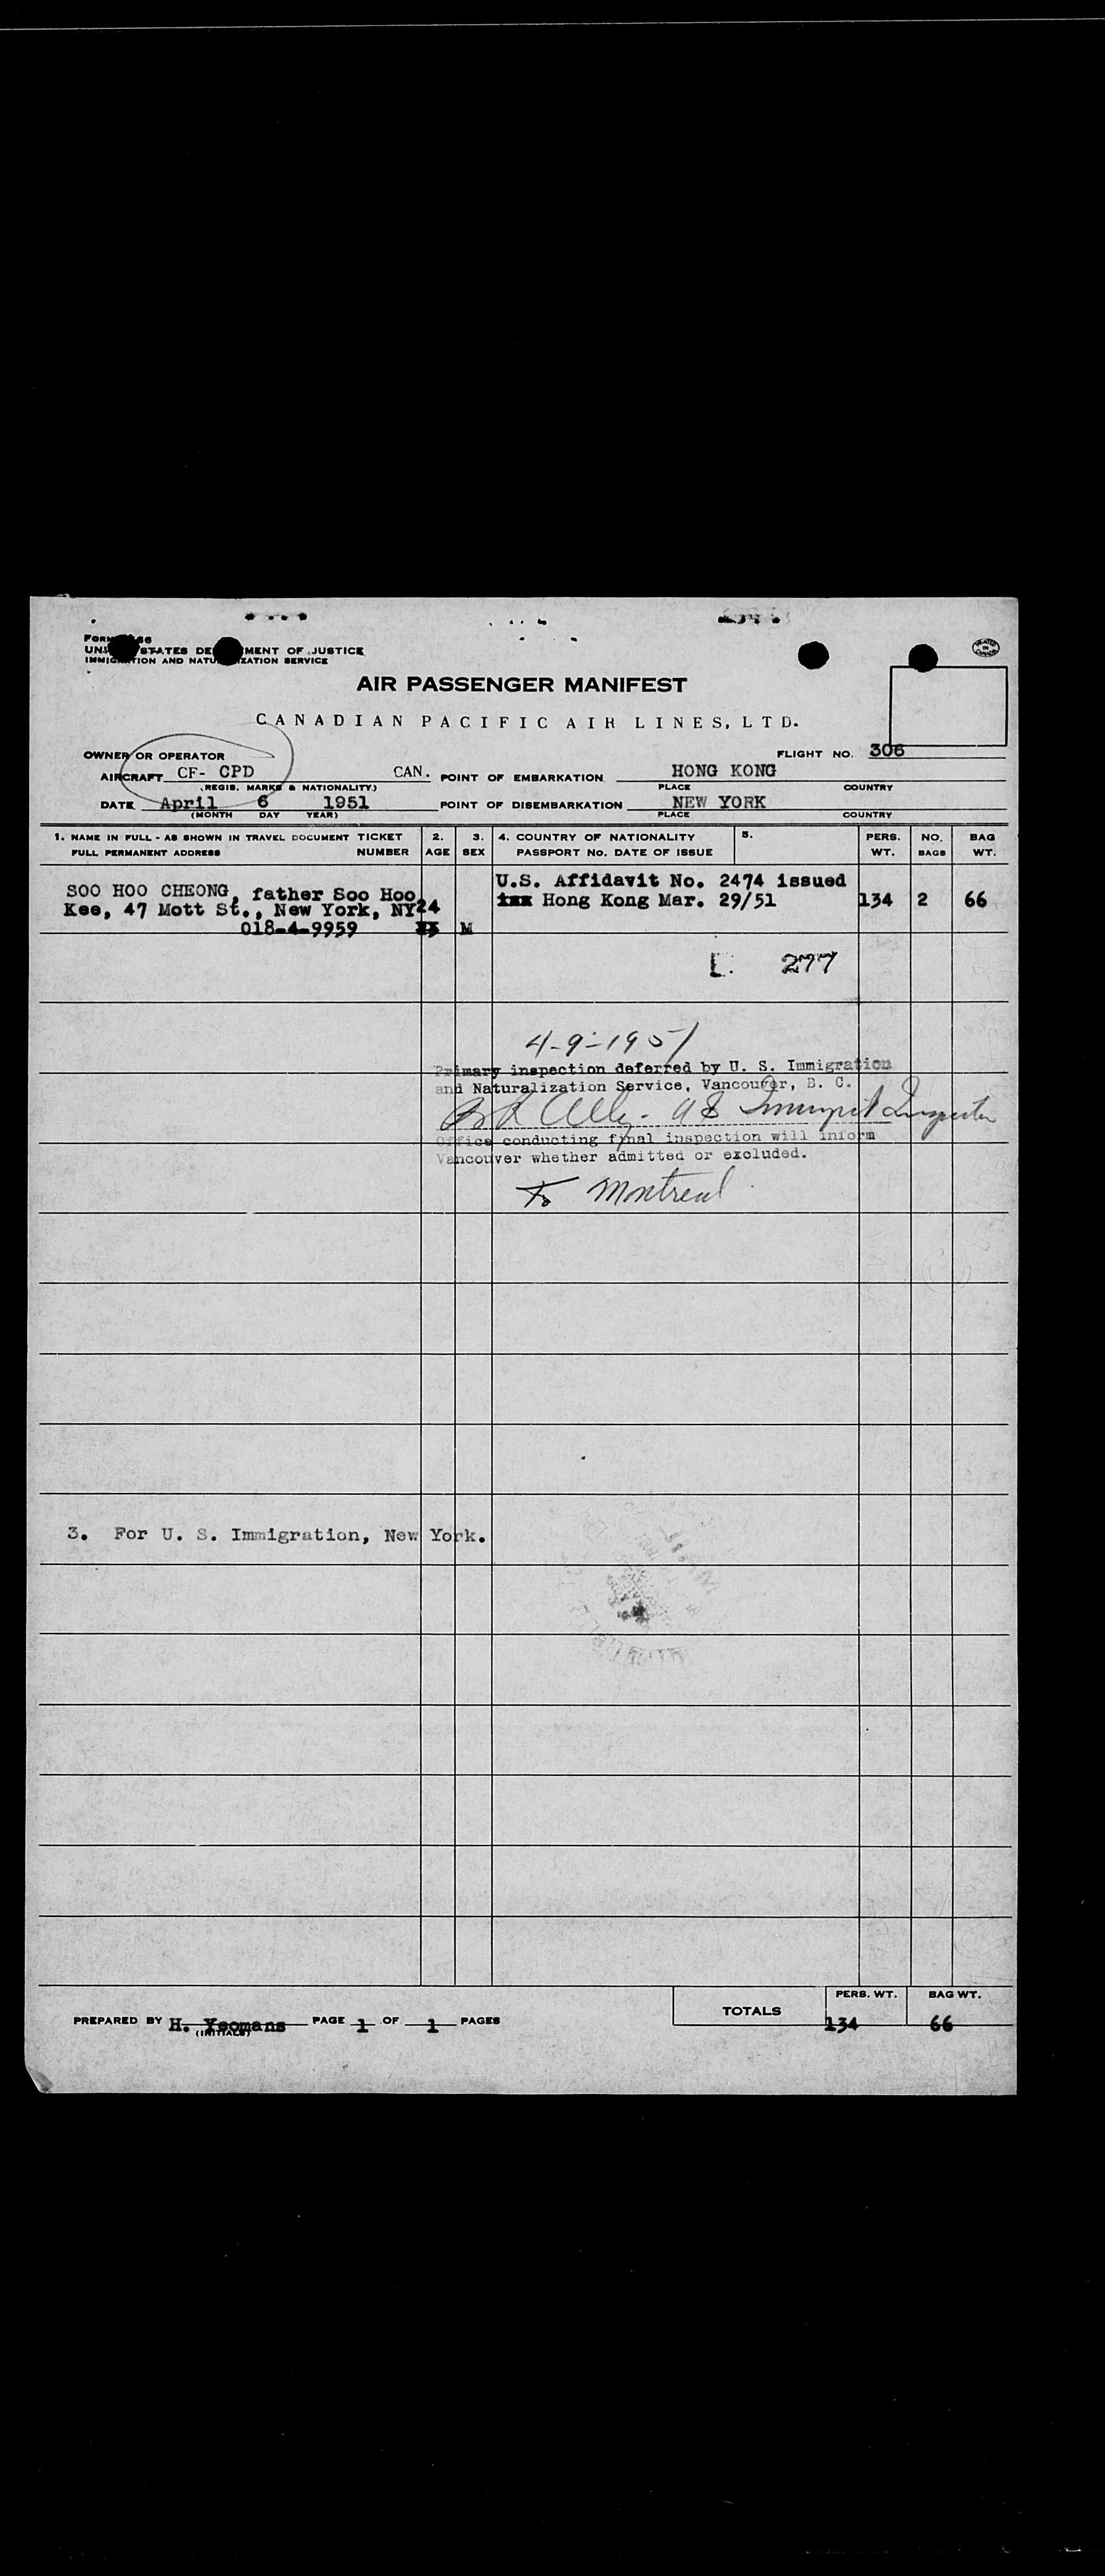 UNITED STATES DEPARTMENT OF JUSTICE
IMMIGRATION AND NATURALIZATION SERVICE
PRINTED IN CANADA
AIR PASSENGER MANIFEST
CANADIAN PACIFIC AIR LINES, LTD.
OWNER OR OPERATOR
FLIGHT NO. 306
AIRCRAFT CF- CPD CAN. POINT OF EMBARKATION HONG KONG
(REGIS. MARKS & NATIONALITY) PLACE COUNTRY
DATE April 6 1951 POINT OF DISEMBARKATION NEW YORK
(MONTH DAY YEAR) PLACE COUNTRY
1. NAME IN FULL - AS SHOWN IN TRAVEL DOCUMENT TICKET 2. 3. 4. COUNTRY OF NATIONALITY 5. PERS. NO. BAG
FULL PERMANENT ADDRESS NUMBER AGE SEX PASSPORT No. DATE OF ISSUE WT. BAGS WT.
U.S. Affidavit No. 2474 issued
SOO HOO CHEONG, father Soo Hoo Hong Kong Mar. 29/51 134 2 66
Kee, 47 Mott St., New York, NY 24
018-4-9959 M
277
4-9-1951
Primary inspection deferred by U. S. Immigration
and Naturalization Service, Vancouver, B. C.
Inspector
Office conducting final inspection will inform
Vancouver whether admitted or excluded.
To Montreal
3. For U. S. Immigration, New York.
PERS. WT. BAG WT.
TOTALS
PREPARED BY H. Yeomans PAGE 1 OF 1 PAGES 134 66
(INITIALS)